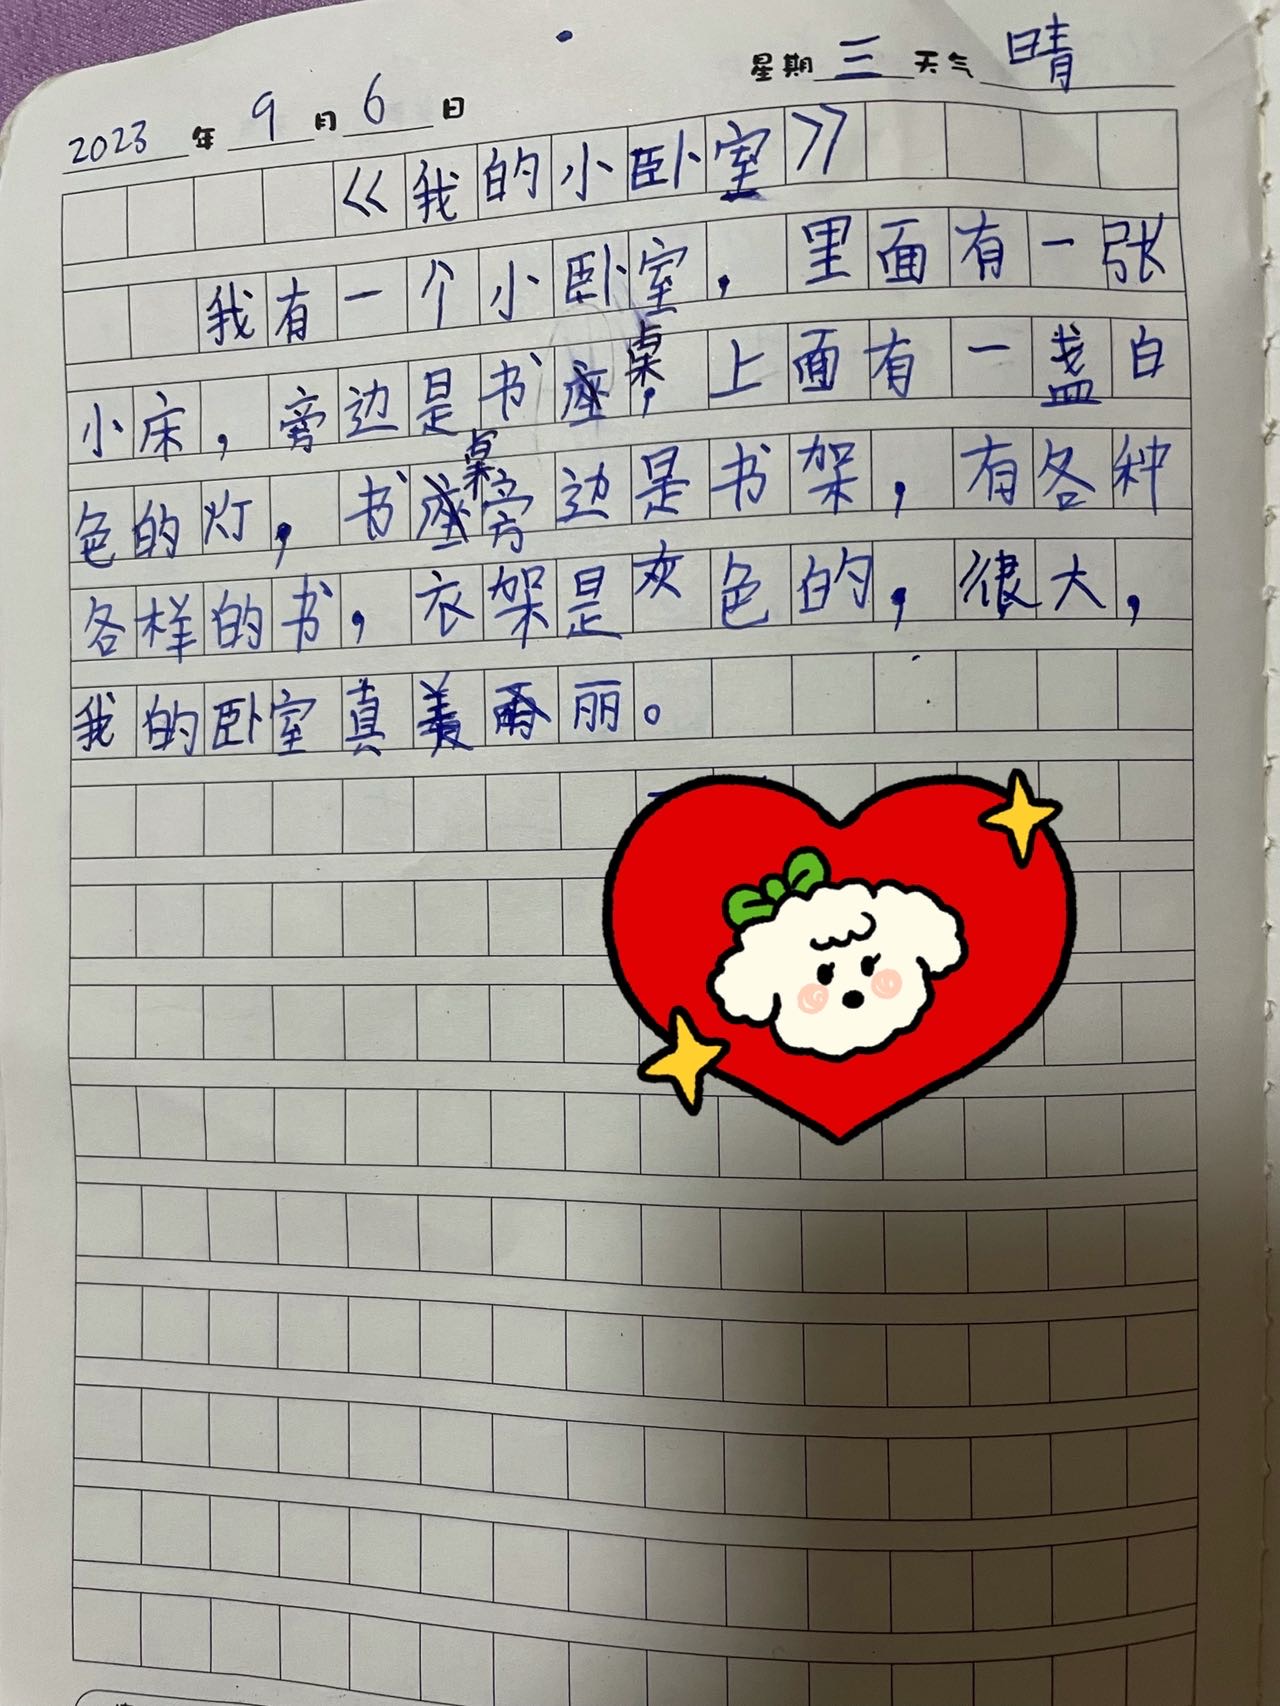 2023年9月6日 星期三天气晴
《我的小卧室》
我有一个小卧室，里面有一张
小床，旁边是书桌，上面有一盏白
色的灯，书桌旁边是书架，有各种
各样的书，衣架是灰色的，很大，
我的卧室真美丽。